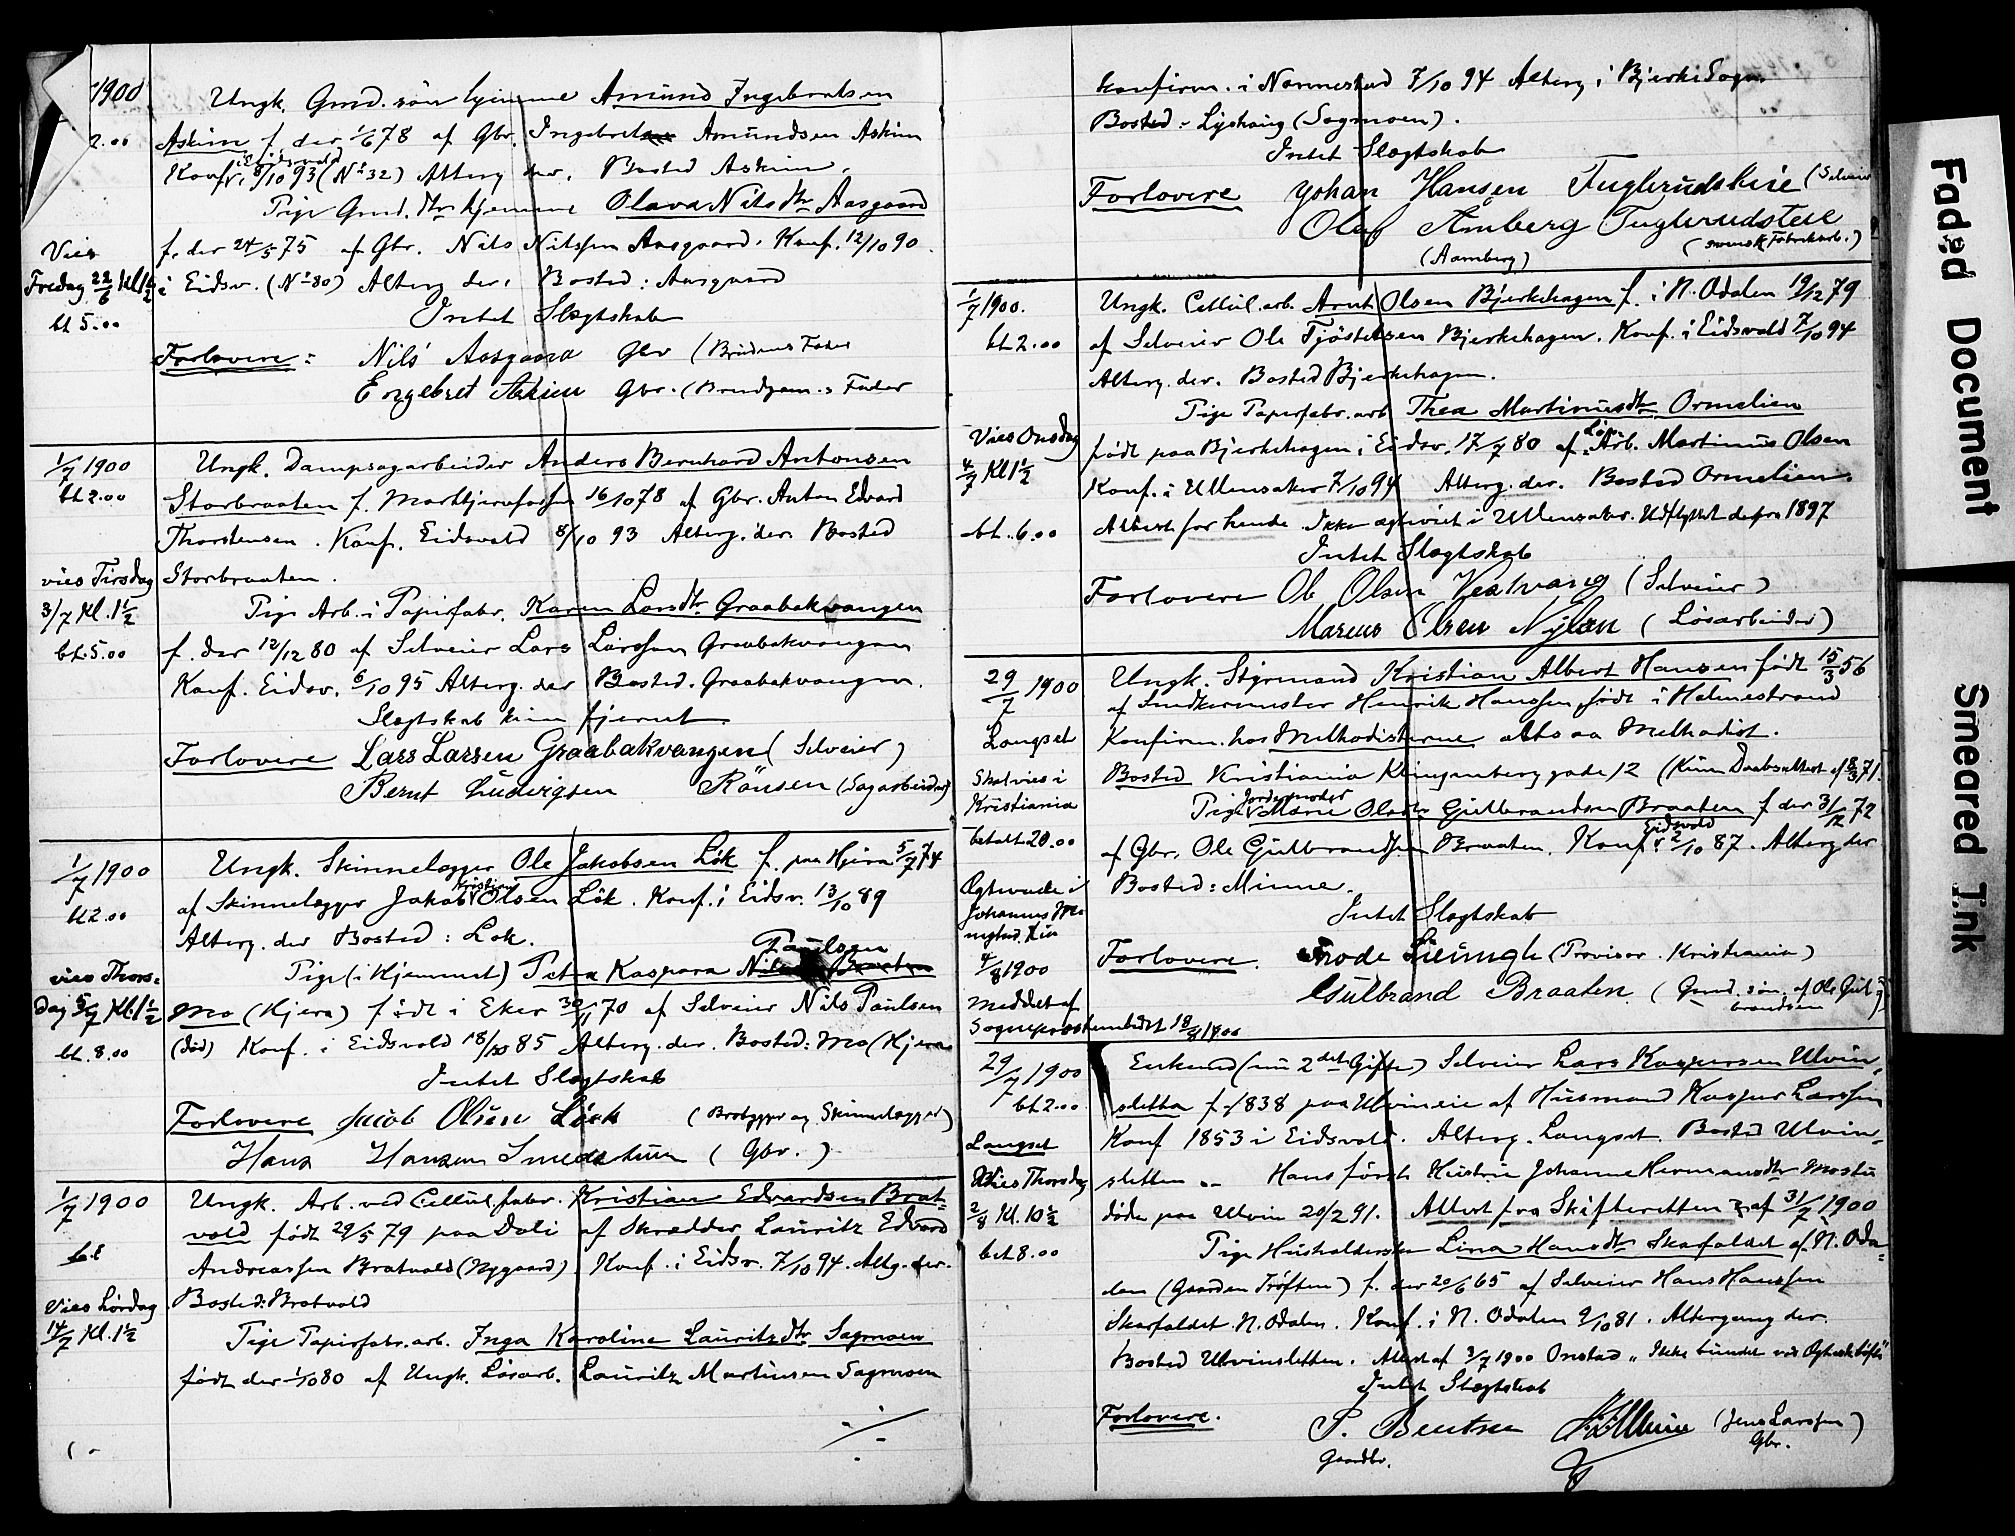 1900
Ungk. Gmd. sön hjemme Amund Ingebretsen
2.00
Askim f. der 1/6 78 af Gbr. Ingebret Amundsen Askim
i Eidsvold
Konf. 8/10 93 (No 32) Alterg. der. Bosted Askim.
Pige Gmd. dtr hjemme Olava Nilsdtr Aasgaard
f. der 24/5 75 af Gbr. Nils Nilssen Aasgaard. Konf. 12/10 90.
Vies
Fredag 22/6 Kl 1 1/2
bt 5.00
i Eidsv. (No 80) Alterg. der. Bosted: Aasgaard
Intet Slægtskab
Forlovere: Nils Aasgaard Gbr (Brudens Fader
Engebret Askim Gbr. (Brudgom. s Fader
1/7 1900
bt 2.00
Ungk. Dampsagarbeider Anders Bernhard Antonsen
Storbraaten f. 16/10 78 af Gbr. Anton Edvard
Thorstensen. Konf. Eidsvold 8/10 93 Alterg. der. Bosted
Storbraaten.
vies Tirsdag
3/7 Kl. 1 1/2
bt. 5.00
Pige Arb. i Papirfabr. Karen Larsdtr Graabakvangen
f. der 12/12 80 af Selveier Lars Larssen Graabakvangen
Konf. Eidsv. 6/10 95 Alterg. der Bosted. Graabakvangen.
Slægtskab kun fjernt
Forlovere Lars Larsen Graabakvangen (Selveier)
Bernt Ludvigsen Rånsen (Sagarbeider)
1/7 1900
bt 2.00
Ungk. Skinnelægger Ole Jakobsen Lök f. paa Hjera 5/7 74
Kristian
af Skinnelægger Jakob Olsen Lök. Konf. i Eidsv. 13/10 89
Alterg. der Bosted: Lok.
Paulsen
Pige (i Hjemmet) Petra Kaspara Braaten
vies Thors=
dag 5/7 Kl. 1 1/2
bt. 8.00
Mo (Hjera) født i Eker 30/11 70 af Selveier Nils Paulsen
(död) Konf. i Eidsvold 18/10 85 Alterg. der. Bosted: Mo (Hjera
Intet Slægtskab
Forlovere Jacob Olsen Löck (Brobygger og Skinnelægger)
Hans Hansen Smedstuen (Gbr.)
1/7 1900
bt
Ungk. Arb. ved Cellul. fabr. Kristian Edvardsen Brat=
vold født 29/5 79 paa Dali af Skrædder Lauritz Edvard
Andreassen Bratvold (Nygaard) Konf. i Eidsv. 7/10 94. Altg. der.
Bosted: Bratvold
Vies Lördag
14/7 Kl. 1 1/2
Pige Papirfabr. arb. Inga Karoline Lauritzdtr Sagmoen
født der 1/10 80 af Ungk. Lösarb. Lauritz Martinsen Sagmoen
./.
konfirm. i Nannestad 7/10 94 Alterg. i Bjerke Sogn.
Bosted: (Sagmoen).
Intet Slægtskab
Forlovere Johan Hansen Fuglerudsteie (Selveier
Olaf Åmberg Fuglerudsteie
(Aamberg) (svensk Fabrikarb.)
1/7 1900.
bt 2.00
Ungk. Cellul. arb. Arnt Olsen Bjerkehagen f. i N. Odalen 19/12 79
af Selveier Ole Tjöstelsen Bjerkehagen. Konf. i Eidsvold 7/10 94
Alterg. der. Bosted Bjerkehagen.
Pige Papirfabr. arb Thea Martinusdtr Ormelien
Vies Onsdag
4/7 Kl 1 1/2
bt. 6.00
født paa Bjerkehagen i Eidsv. 17/7 80 af Lös Arb. Martinus Olsen
Konf. i Ullensaker 7/10 94 Alterg. der. Bosted Ormelien.
Attest for hende Ikke ægteviet i Ullensaker. Udflyttet derfra 1897
Intet Slægtskab
Forlovere Ole Olsen Vestvang (Selveier)
Marius Olsen Nylæn (Lösarbeider)
29/7 1900
Ungk. Styrmand Kristian Albert Hansen født 15/3 56
af Snedkermester Henrik Hanssen født i Holmestrand
Langset
Konfirm. hos Methodisterne altsaa Methodist.
Skal vies i
Kristiania
betalt 20.00
Bosted Kristiania Klingenberggade 12 (Kun Daabsattest af 8/3 71.
Jordemoder
Pige Marie Olsdtr Gulbrandsen Braaten f. der 31/12 72
Eidsvold
af Gbr. Ole Gulbrandsen Braaten. Konf. 2/10 87. Alterg der
Bosted: Minne.
Intet Slægtskab
Ægteviede i
Johannes Me
nighed. Kra
4/8 1900
Meddelt af
Sogneprestembedet 18/8 1900
Forlovere. Frode (Provisor. Kristiania)
Gulbrand Braaten (Gmd. sön. af Ole Gul
brandsen)
29/7 1900
bt 2.00
Enkemd (nu 2det Gifte) Selveier Lars Kaspersen Ulvin=
sletta f. 1838 paa Ulvineie af Husmand Kasper Larssen
Langset
Konf 1853 i Eidsvold. Alterg. Langset. Bosted Ulvin=
Vies Thorsdag
2/8 Kl. 10 1/2
bet 8.00
sletten .. Hans første Hustru Johanne Hermansdtr Mostu
døde paa Ulvin 20/2 91. Attest fra Skifteretten af 31/7 1900
Pige Husholderske Lina Hansdtr Skarfaldet af N. Oda=
len (Gaarden Tröften) f. der 20/6 65 af Selveier Hans Hanssen
Skarfaldet N. Odalen. Konf. i N. Odalen 9/10 81. Altergang der.
Bosted Ulvinsletten. Attest af 3/7 1900 Onstad "Ikke bundet ved Ægteskabsløfte"
Intet Slægtskab
Forlovere. P. Bentsen (Jens Larssen)
Gaardbr. Gbr.
Faded Document
Smeared Ink